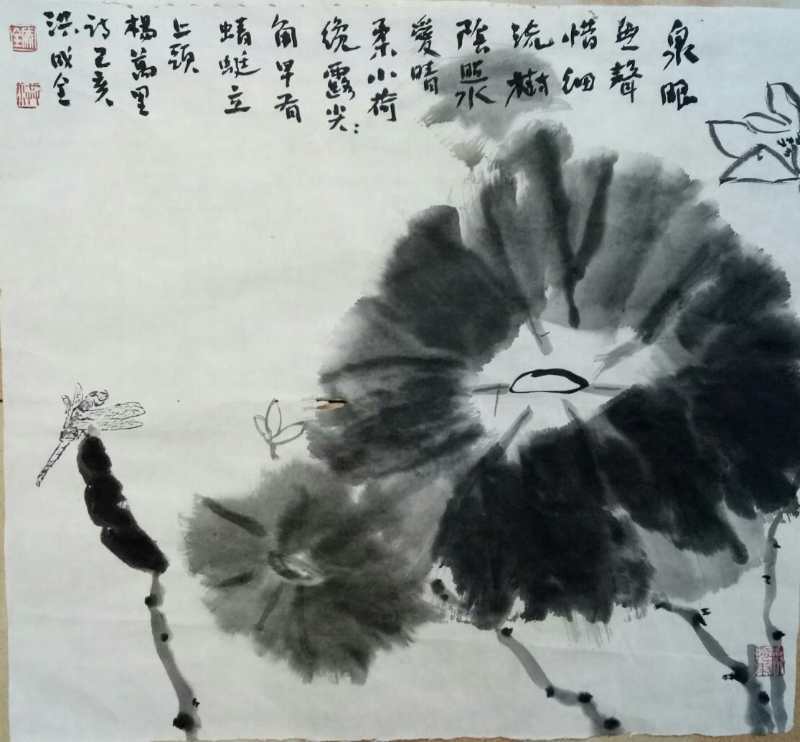 泉眼
無聲
惜細
流樹
陰照水
愛晴
柔小荷
纔露尖:
角早有
蜻蜓立
上頭
楊萬里
詩己亥
洪成全